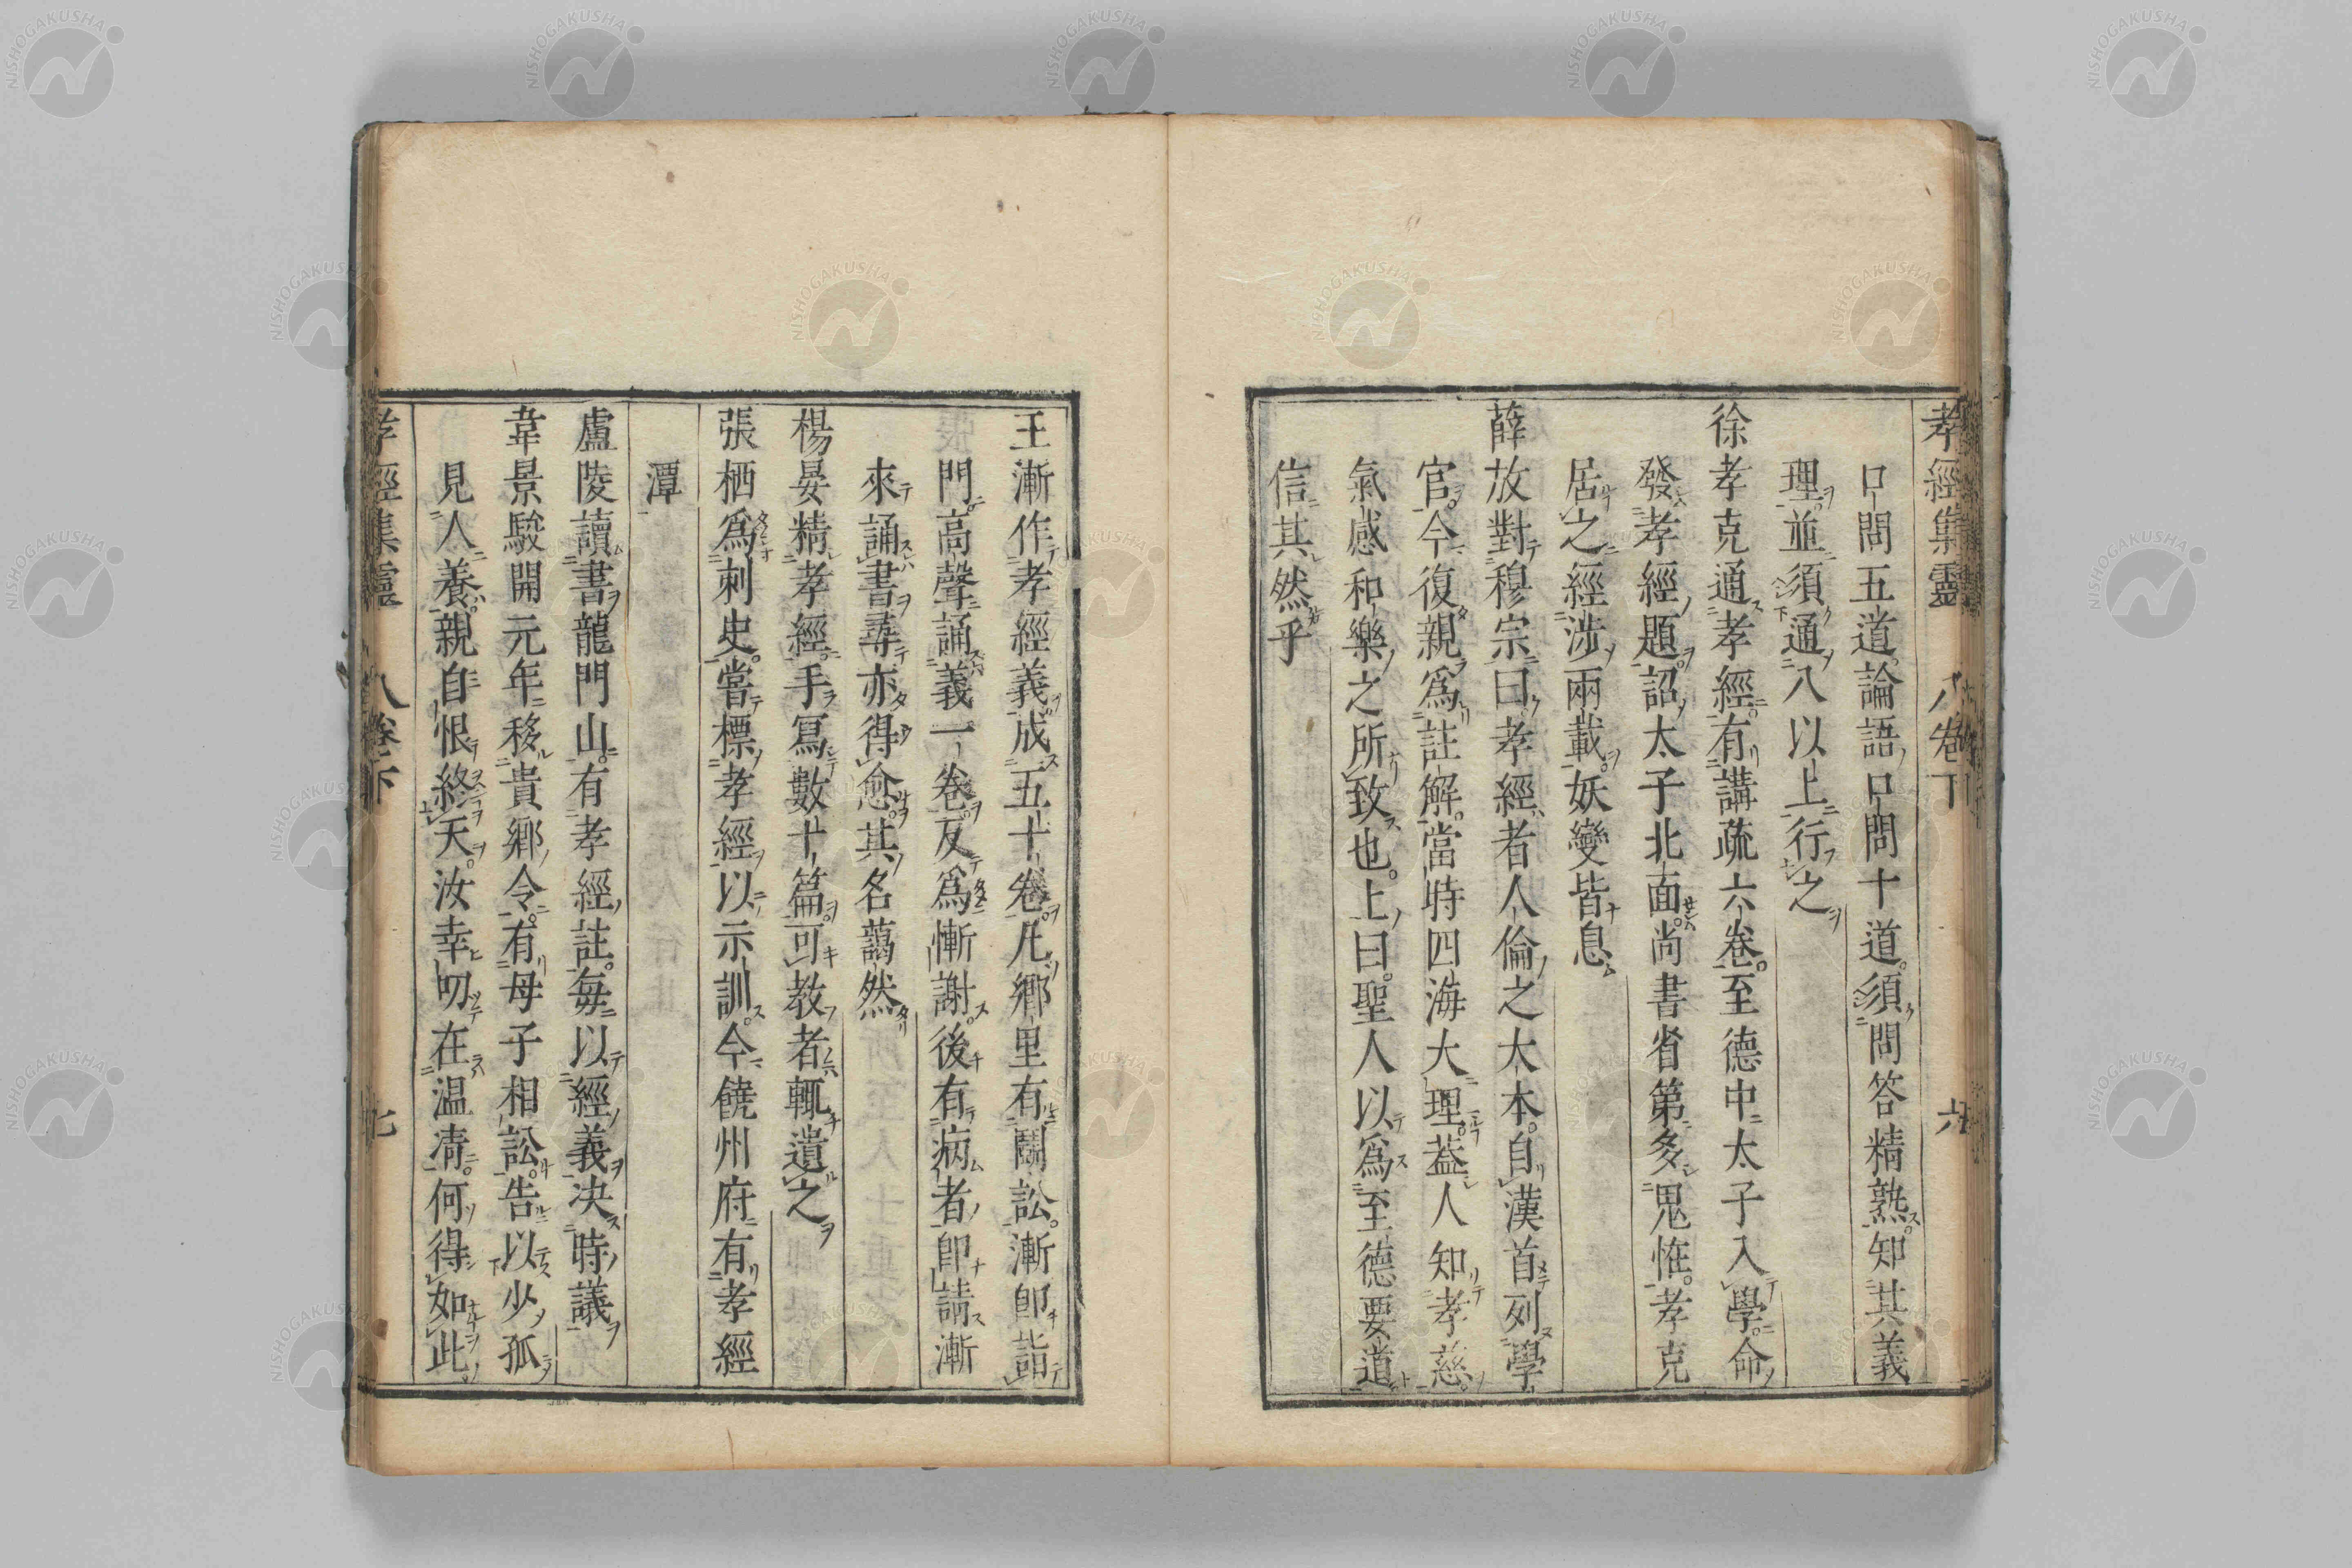 孝經集靈 八卷下 六
口問五道論語口問十道須問答精熟知其義
理並須通八以上行之
徐孝克通孝經有講疏六卷至德中太子入學命
發孝經題詔太子北面尚書省第多鬼恠孝克
居之經涉兩載妖變皆息
薛放對穆宗曰孝經者人倫之大本自漢首列學
官今復親爲註解當時四海大理蓋人知孝慈
氣感和樂之所致也上曰聖人以爲至德要道
信其然乎
王漸作孝經義成五十卷凡鄉里有鬭訟漸卽詣
門高聲誦義一卷反爲慚謝後有病者卽請漸
來誦書尋亦得愈其名藹然
楊晏精孝經手寫數十篇可教者輒遺之
張栖爲刺史嘗標孝經以示訓今饒州府有孝經
潭
盧陵讀書龍門山有孝經註每以經義决時議
韋景駿開元年移貴鄉令有母子相訟告以少孤
見人養親自恨終天汝幸叨在温凊何得如此
孝經集靈 八卷下 七
NISHOGAKUSHA